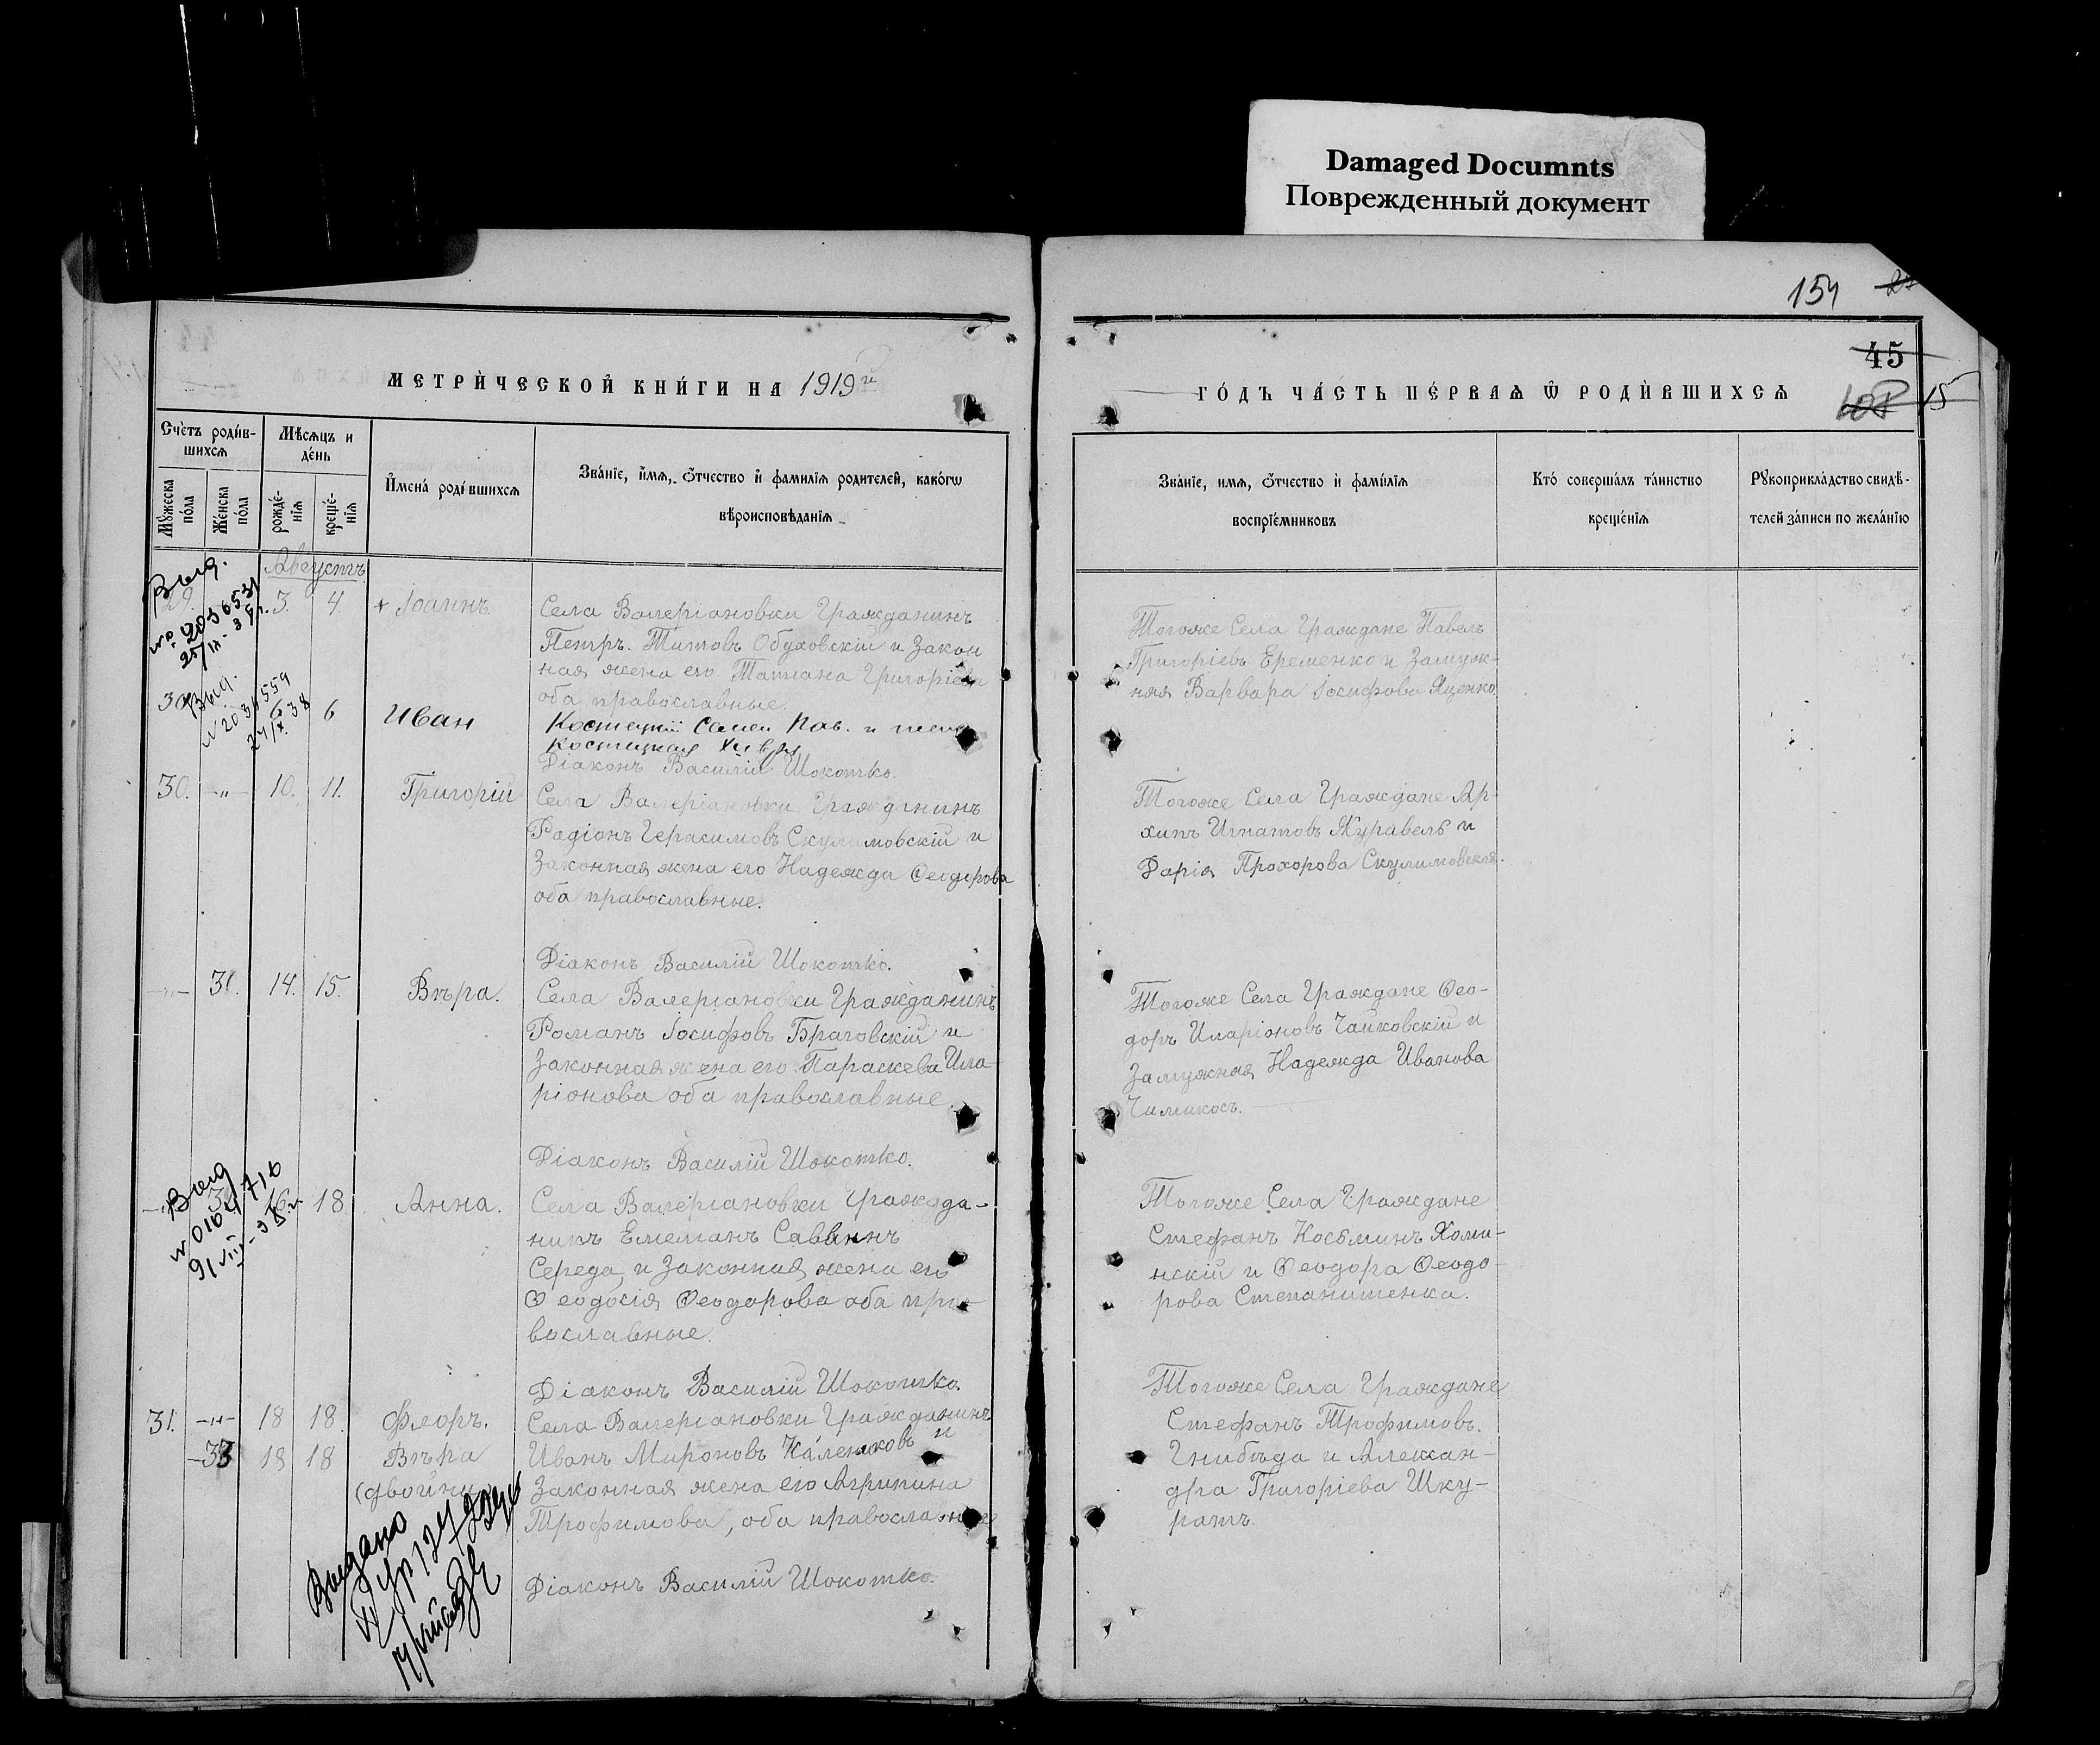 Damaged Documnts
Поврежденный документ
154
45
15
МЕТРИ́ЧЕСКОЙ КНИ́ГИ НА 1919й
ГО́ДЪ ЧА́СТЬ ПЕ́РВАѦ Ѿ РОДИ́ВШИХСѦ
Счѐтъ роди́в-
шихсѧ
Мѣсѧцъ и
де́нь
Мꙋ́жеска по́ла
Же́нска по́ла
рожде́-
нїѧ
креще́-
нїѧ
И҆мена́ роди́вшихсѧ
Зва́нїе, и҆́мѧ, ѻ҆́тчество и҆ фамилїѧ родителей, како́гѡ
вѣроисповѣданїѧ
Зва́нїе, имѧ, ѻ҆́тчество и҆ фами́лїѧ
воспрїе́мниковъ
Кто́ соверша́лъ та́инство
креще́нїѧ
Рꙋкоприкла́дство свидѣ-
телей за́писи по жела́нїю
Августъ
Выд.
29. 3. 4. + Іоаннъ.
Села Валеріановки Гражданинъ
Петръ. Титовъ Обуховскій и Закон
ная жена его Татіана Григоріева
оба православные.
Тогоже Села Граждане Павелъ
Григоріевъ Еременко и Замуж-
няя Варвара Іосифова Яценко
30 Выд. 6 6 Иван
Костецкий Семен Пав. и
Костецкая
Діаконъ Василій Шокотко.
30. -„- 10. 11. Григорій
Села Валеріановки Гражданинъ
Радіонъ Герасимовъ Скулимовскій и
Законная жена его Надежда Ѳеодорова
оба православные.
Тогоже Села Граждане Ар-
хипъ Игнатовъ Журавель и
Дарія Прохорова Скулимовская.
Діаконъ Василій Шокотко.
-„- 31. 14. 15. Вѣра.
Села Валеріановки Гражданинъ
Романъ Іосифовъ Браговскій и
Законная жена его Параскева Ила-
ріонова оба православные.
Тогоже Села Граждане Ѳео-
доръ Иларіоновъ Чайковскій и
Замужняя Надежда Иванова
Діаконъ Василій Шокотко.
Выд
16. 18. Анна.
Села Валеріановки Гражда-
нинъ Емеліанъ Саввинъ
Середа, и Законная жена его
Ѳеодосія Ѳеодорова оба пра-
вославные.
Тогоже Села Граждане
Стефанъ Косьминъ Хоми-
нскій и Ѳеодора Ѳеодо-
рова Степанитенка.
Діаконъ Василій Шокотко.
31. -„- 18 18. Флоръ.
-33 18 18 Вѣра
(двойни
Села Валеріановки Гражданинъ
Иванъ Мироновъ Калениковъ и
Законная жена его Агрипина
Трофимова, оба православные
Тогоже Села Граждане
Стефанъ Трофимовъ.
Гнибѣда и Алексан-
дра Григоріева Шку-
ратъ
Выдано
Діаконъ Василій Шокотко.